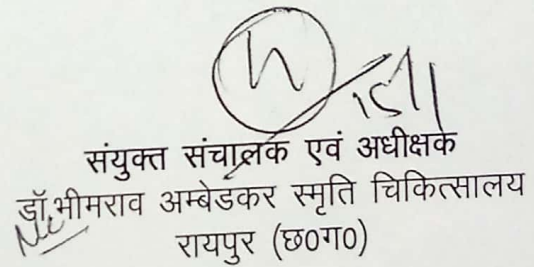 संयुक्त संचालक एवं अधीक्षक
डॉ.भीमराव अम्बेडकर स्मृति चिकित्सालय
रायपुर (छ०ग०)